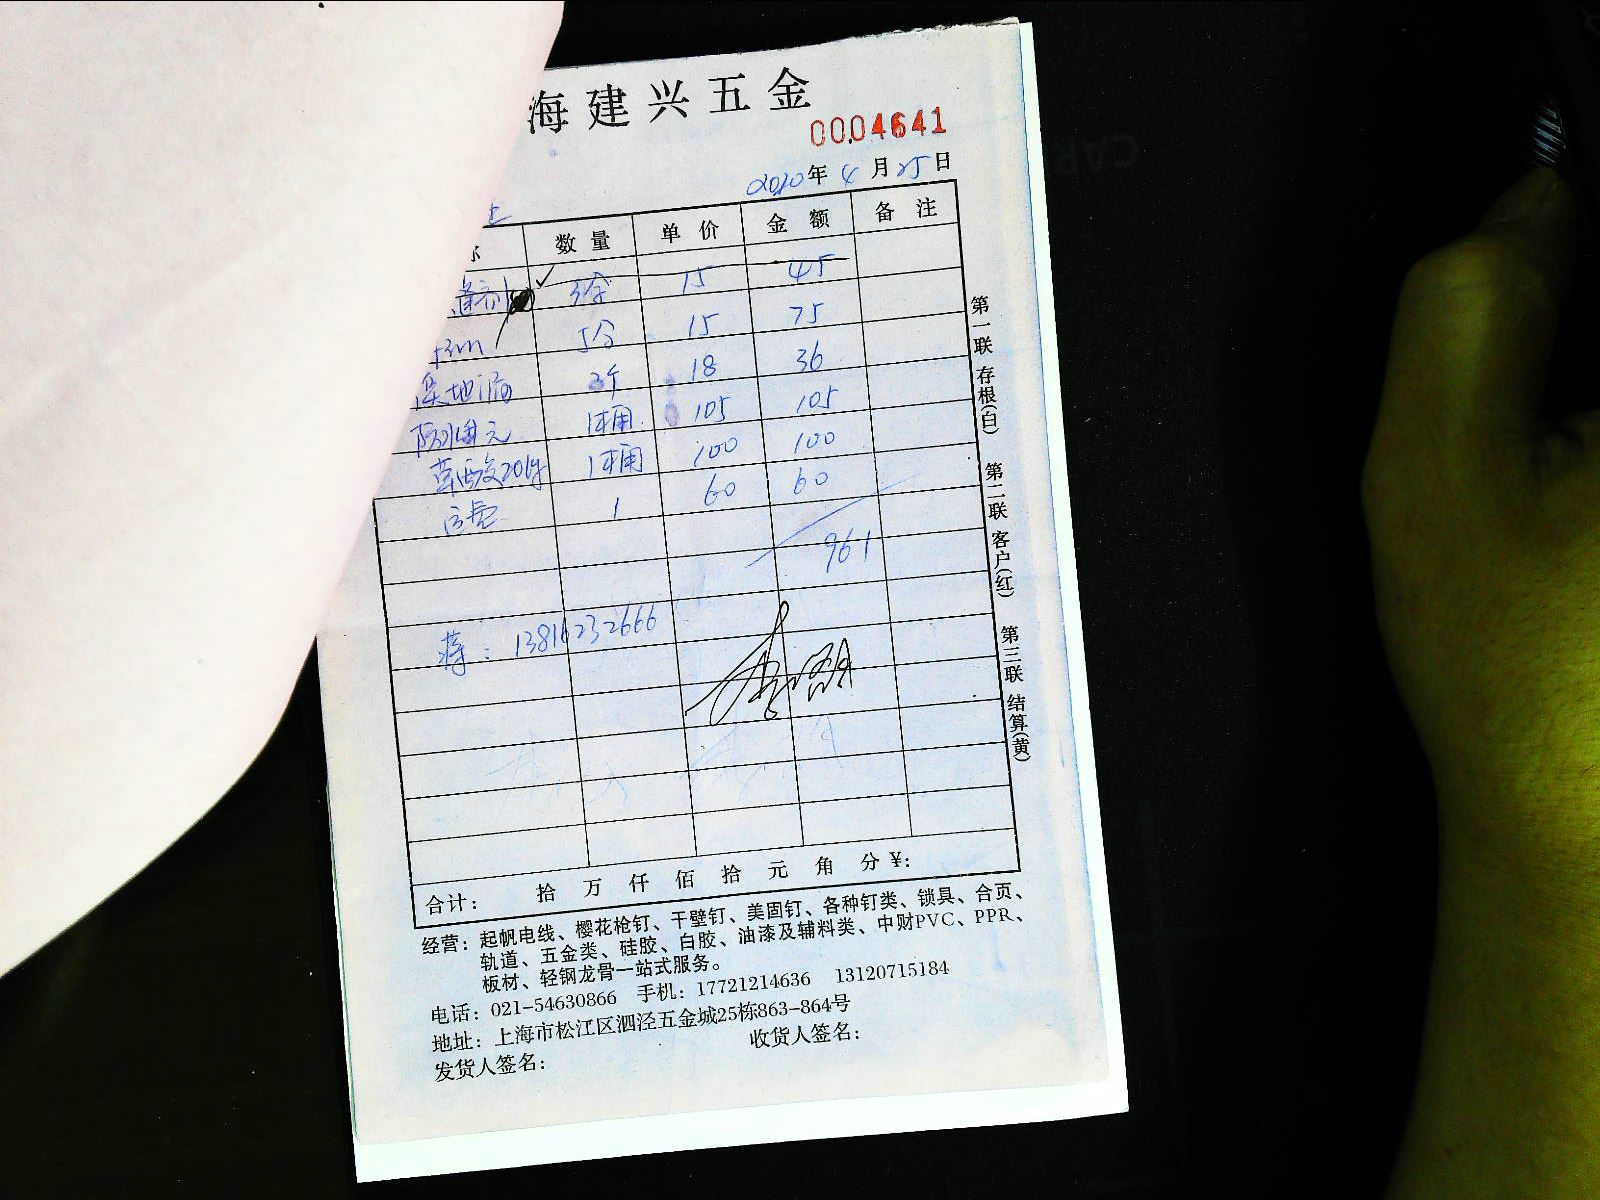 海建兴五金
0004641
2020年4月25日
数量 单价 金额 备注
15 45
15 75
地漏 2个 18 36
1桶 105 105
草酸20kg 1桶 100 100
运费 1 60 60
961
蒋：13816232666
合计： 拾 万 仟 佰 拾 元 角 分 ¥:
第一联 存根(白) 第二联 客户(红) 第三联 结算(黄)
经营：起帆电线、樱花枪钉、干壁钉、美固钉、各种钉类、锁具、合页、
轨道、五金类、硅胶、白胶、油漆及辅料类、中财PVC、PPR、
板材、轻钢龙骨一站式服务。
电话：021-54630866 手机：17721214636 13120715184
地址：上海市松江区泗泾五金城25栋863-864号
发货人签名： 收货人签名：